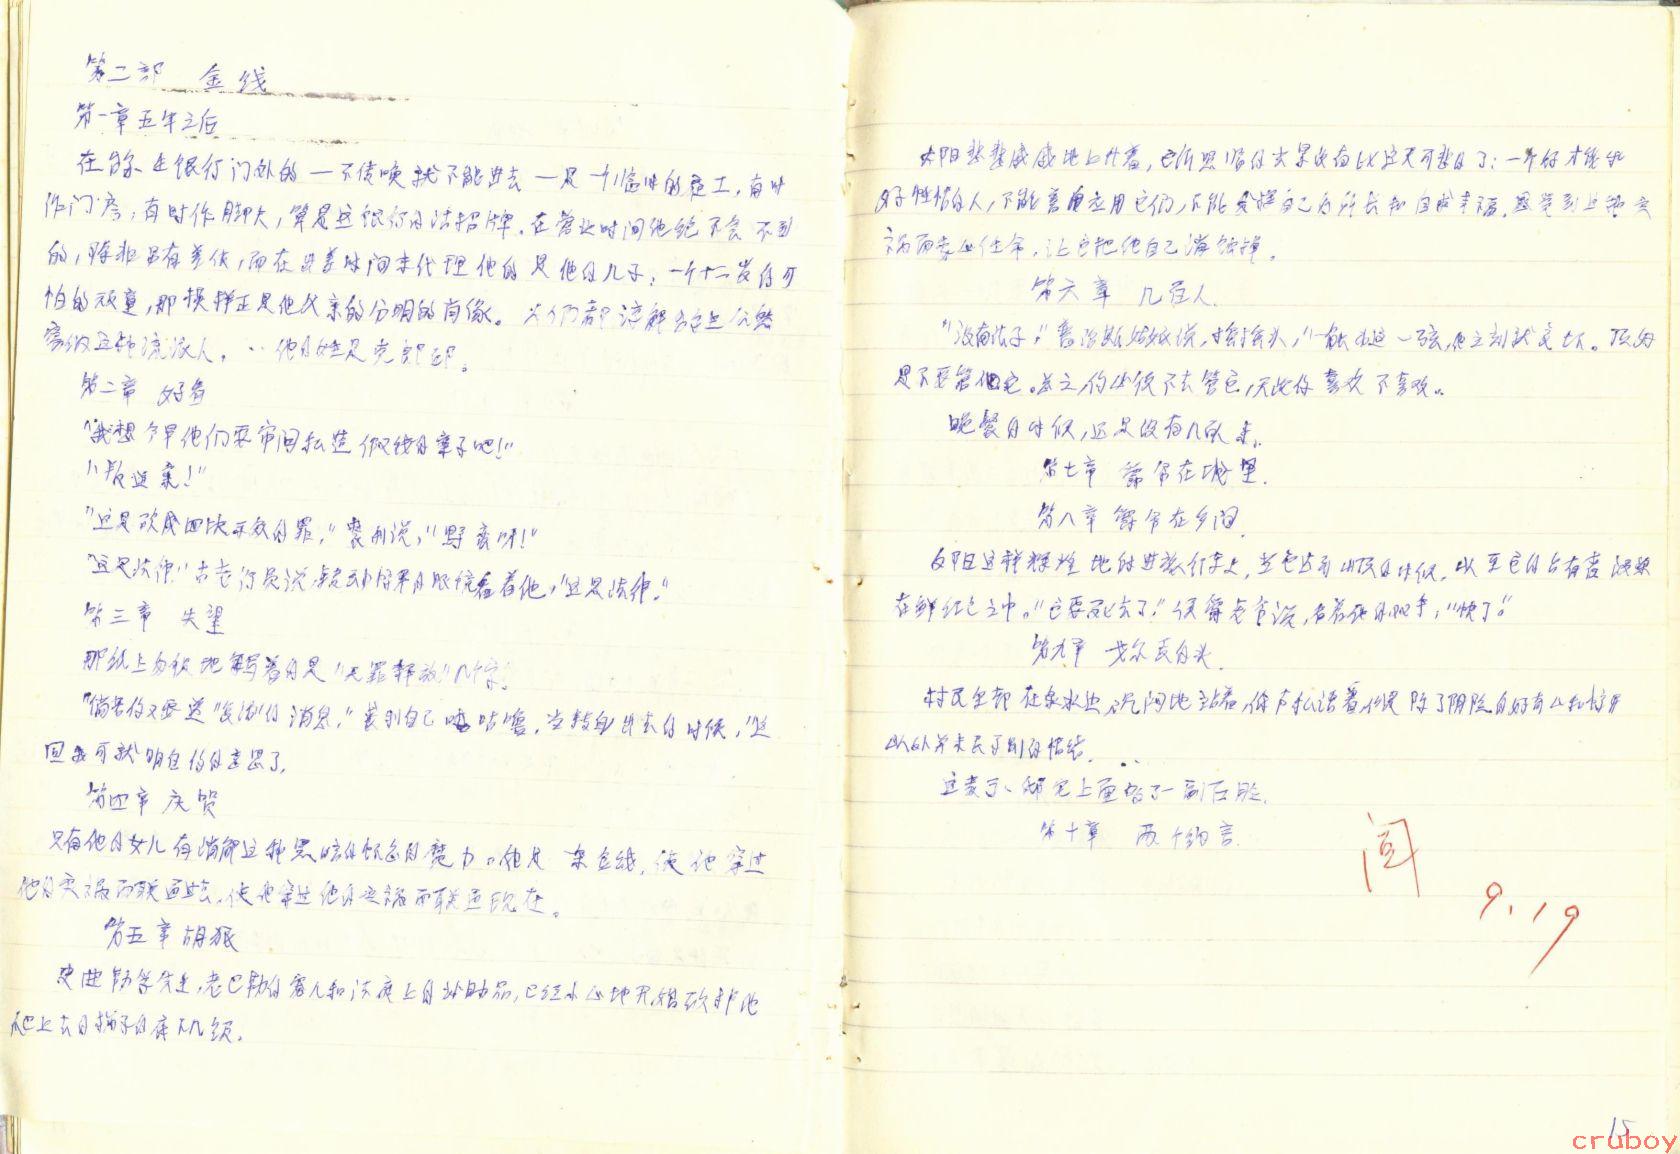 第二部 金线
第一章 五年之后
在台尔生银行门外的一不传唤就不能进去一是一个临时的苦工，有时
作门房，有时作脚夫，算是这银行的活招牌。在营业时间他绝不会不到
的，除非另有差使，而在出差时间来代理他的是他的儿子：一个十二岁的可
怕的顽童，那模样正是他父亲的分明的肖像。人们都谅解
这种流派人，‥他的姓是克郎邱。
第二章 好看
"我想今早他们要审问私造假钱的案子吧！"
"叛逆案！"
"这是砍成四块示众的罪，"裘利说，"野蛮呀！"
"这是法律"古老行员说，转动惊异的眼镜看着他，"这是法律。"
第三章 失望
那纸上匆促地写着的是"无罪释放"几个字。
"倘若你又要送'复活'的消息，"裘利自己咕噜，当转身出去的时候，"这
回我可就明白你的意思了。
第四章 庆贺
只有他的女儿有消解这种黑暗的忧郁的魔力。他是一条金线，使他穿过
他的灾祸而联通过去，使他穿过他的灾祸而联通现在。
第五章 胡狼
史曲勒孚先生，老巴勒的宠儿和法庭上的外助品，已经小心地开始砍掉他
爬上去的梯子的底下几级。
太阳悲悲戚戚地上升着，它所照临的景象没有比这更可悲的了：一个好才能和
好性情的人，不能善自应用它们，不能发挥自己的所长和自求幸福，感觉到这种灾
祸而委心任命，让它把他自己消蚀掉。
第六章 几百人
"没有法子，"普洛斯姑娘说，摇摇头，"一触到这一弦，他立刻就变坏。顶好
是不要管它。总之，你必须不去管它，无论你喜欢不喜欢。
晚餐的时候，还是没有几百人来。
第七章 爵爷在城里
第八章 爵爷在乡间
夕阳这样辉煌地的进旅行车上，当它达到山顶的时候，以至它的占有者浸
在鲜红色之中。"它要死去了，"侯爵老爷说，看着他的双手，"快了。"
第九章 戈尔贡的头
村民全都在泉水边，沉闷地站着，低声私语着，但是除了阴险的好奇心和惊异
以外并未表示别的情绪。
这表示，邸宅上面多了一副石脸。
第十章 两个约言
阅
9.19
15
cruboy